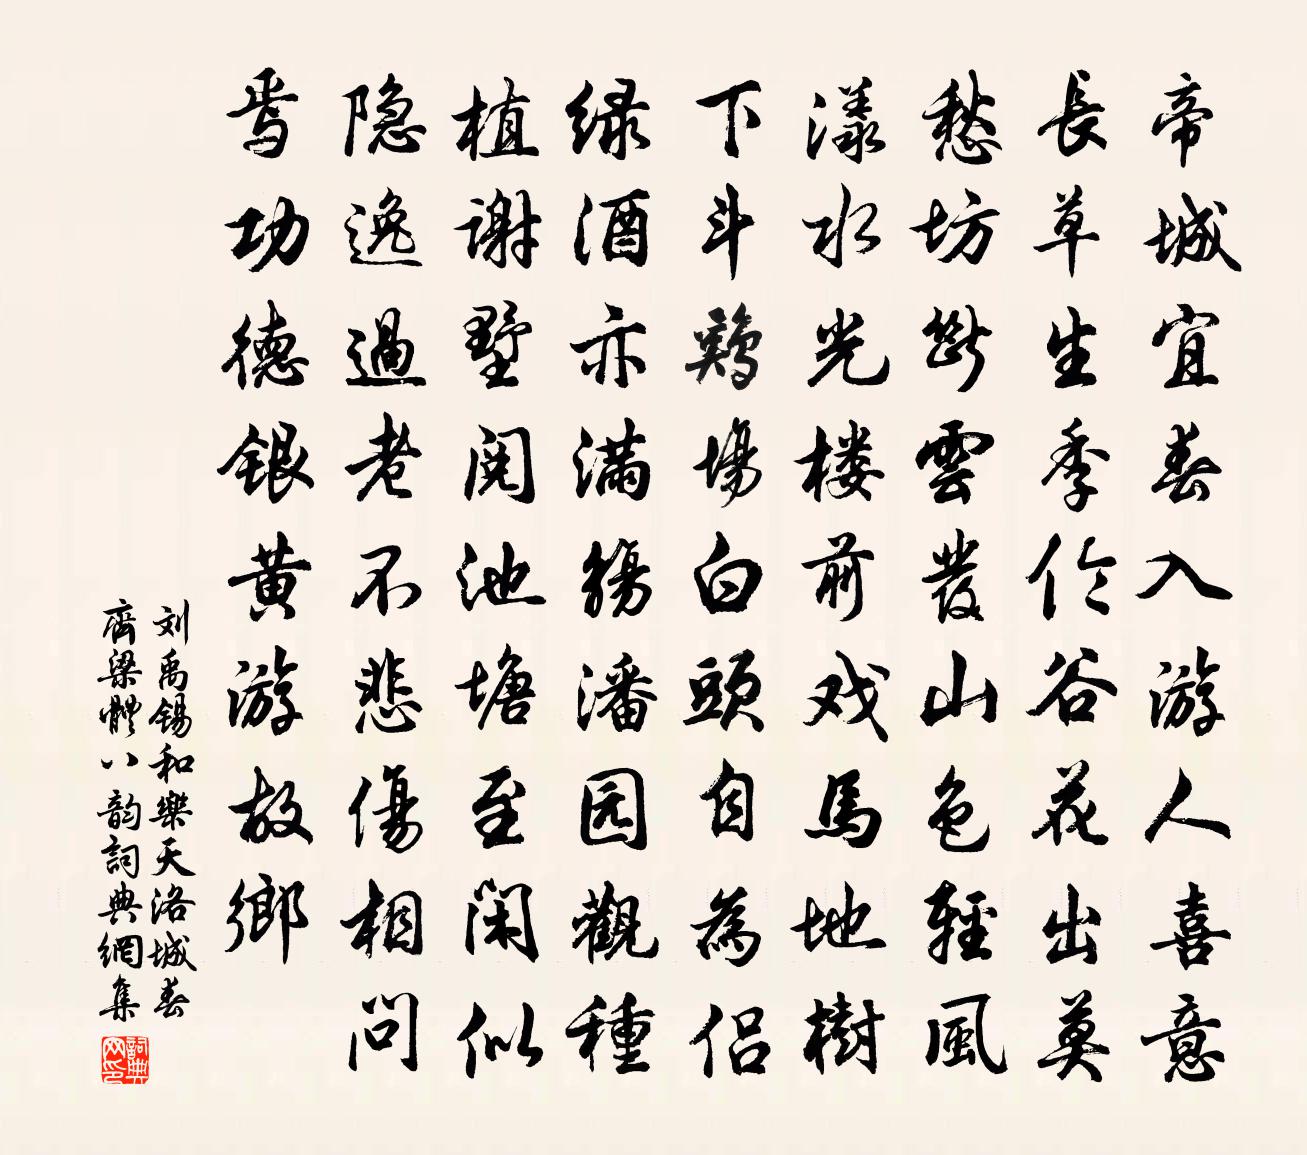 帝城宜春入游人喜意
長草生季伦谷花出莫
愁坊斷雲發山色輕風
漾水光楼前戏馬地樹
下斗鷄場白頭自為侣
绿酒亦滿觴潘园觀種
植謝墅阅池塘至闲似
隐逸過老不悲傷相問
焉功德銀黄游故鄉
刘禹锡和樂天洛城春
齊梁體八韵詞典網集
詞典
网印